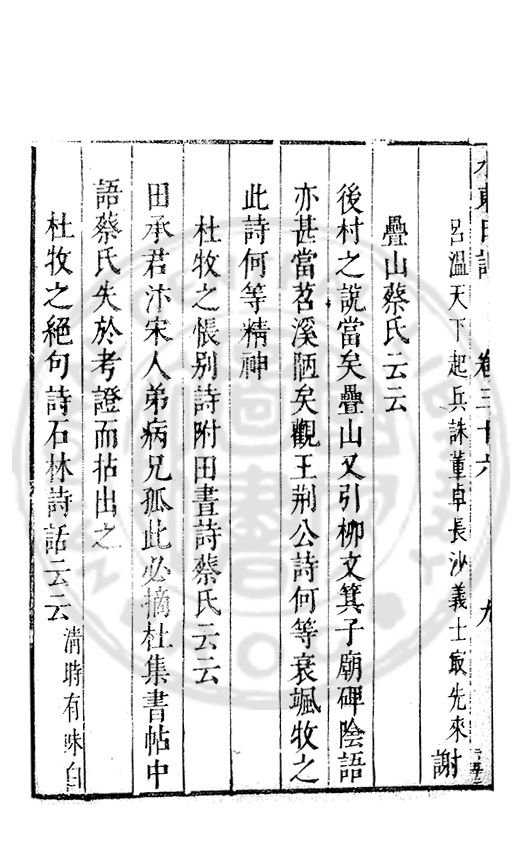 水東日記 卷三十六 九
呂溫天下起兵誅董卓長沙義士最先來 謝
疊山蔡氏云云
後村之說當矣疊山又引柳文箕子廟碑陰語
亦甚當苕溪陋矣觀王荊公詩何等衰颯牧之
此詩何等精神
杜牧之悵别詩附田晝詩蔡氏云云
田承君汴宋人弟病兄孤此必摘杜集書帖中
語蔡氏失於考證而拈出之
杜牧之絕句詩石林詩話云云 清時有味自